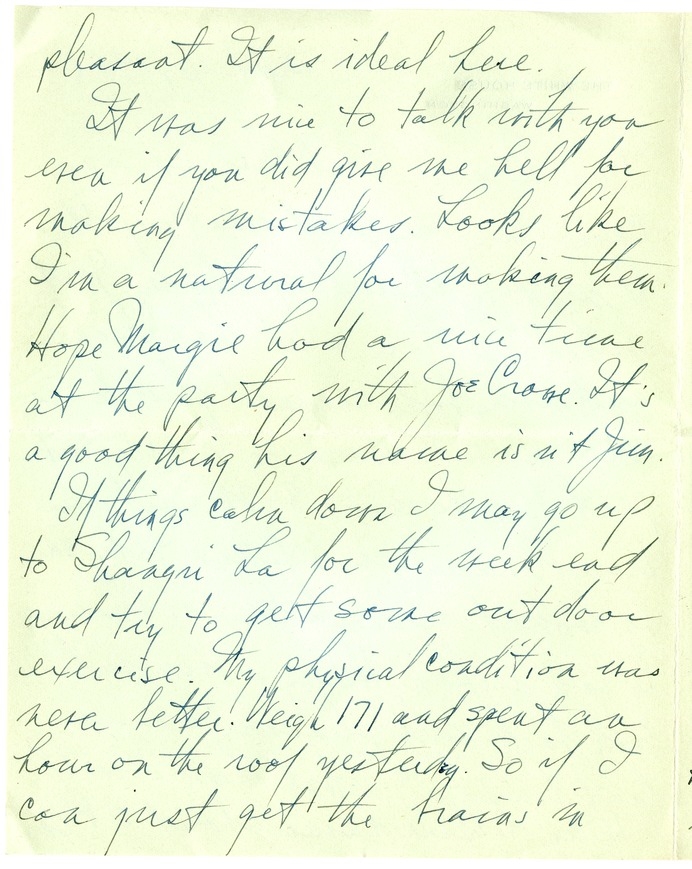 pleasant. It is ideal here.
It was nice to talk with you
even if you did give me hell for
making mistakes. Looks like
I'm a natural for making them.
Hope Margie had a nice time
at the party with Joe Crowe. It's
a good thing his name isn't Jim.
If things calm down I may go up
to Shangri La for the week end
and try to get some outdoor
exercise. My physical condition was
never better. Weigh 171 and spent an
hour on the roof yesterday. So if I
can just get the trains in